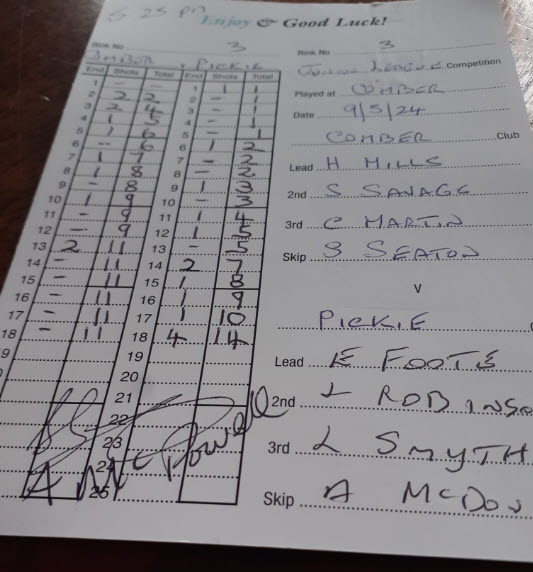 6.25 pm
Enjoy & Good Luck!
Rink No 3
Rink No 3
PICKIE
JUNIOR LEAGUE Competition
Played at COMBER
Date 9/5/24
COMBER Club
Lead H MILLS
2nd S SAVAGE
3rd C MARTIN
Skip S SEATON
V
PICKIE
Lead E FOOTE
2nd L ROBINSO
3rd L SMYTH
Skip A McDOW
End Shots Total End Shots Total
1 - - 1 1 1
2 2 2 2 - 1
3 2 4 3 - 1
4 1 5 4 - 1
5 1 6 5 - 1
6 - 6 6 1 2
7 1 7 7 - 2
8 1 8 8 - 2
9 - 8 9 1 3
10 1 9 10 - 3
11 - 9 11 1 4
12 - 9 12 1 5
13 2 11 13 - 5
14 - 11 14 2 7
15 - 11 15 1 8
16 - 11 16 1 9
17 - 11 17 1 10
18 - 11 18 4 14
9 19
20
21
22
23
24
25
A McDowell